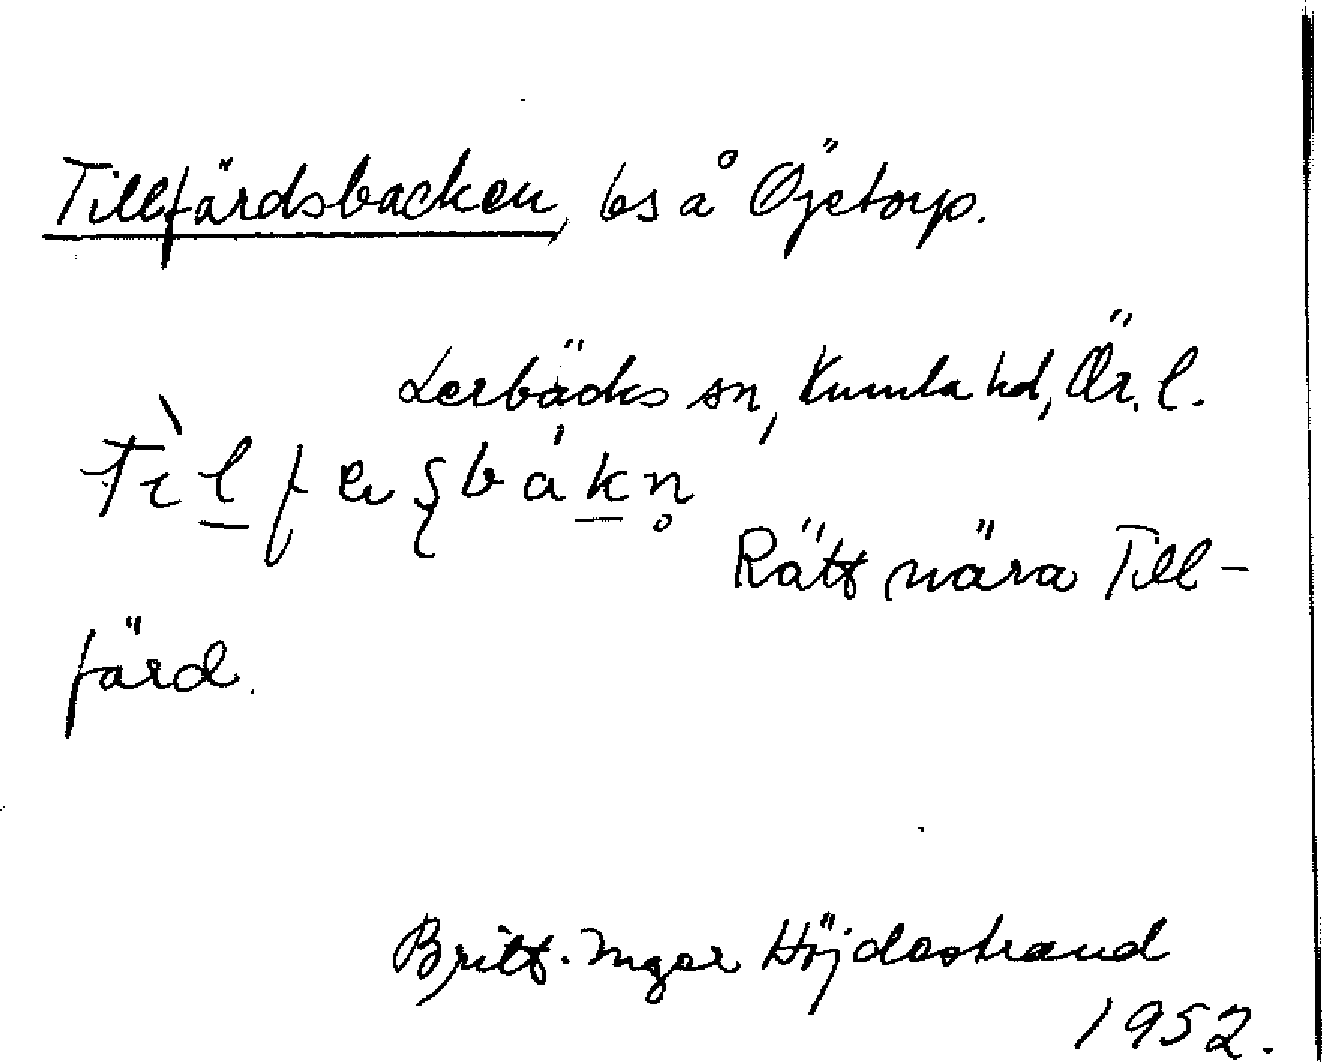 Tillfärdsbacken, bs å Öjetorp.
Lerbäcks sn, Kumla hd, Ör. l.
Rätt nära Till-
färd.
Britt-Inger Höjdestrand
1952.